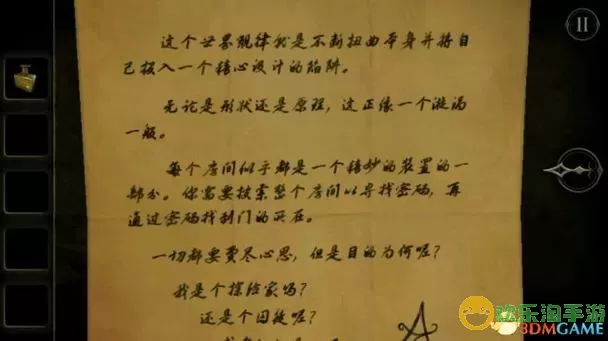 这个世界规律就是不断扭曲本身并将自
己投入一个精心设计的陷阱。
无论是形状还是原理，这正像一个漩涡
一般。
每个房间似乎都是一个精妙的装置的一
部分。你需要搜索整个房间以寻找密码，再
通过密码找到门的所在。
一切都要费尽心思，但是目的为何呢？
我是个探险家吗？
还是个囚徒呢？
欢乐淘手游
3DMGAME